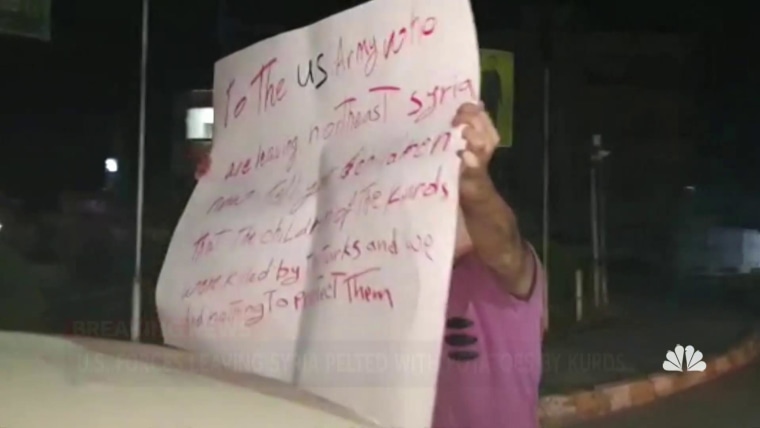 To The US Army who
are leaving northeast Syria
now Tell your
that The children of The Kurds
were killed by Turks and we
did nothing To protect Them
BREAKING
U.S. FORCES LEAVING SYRIA PELTED WITH POTATOES BY KURDS